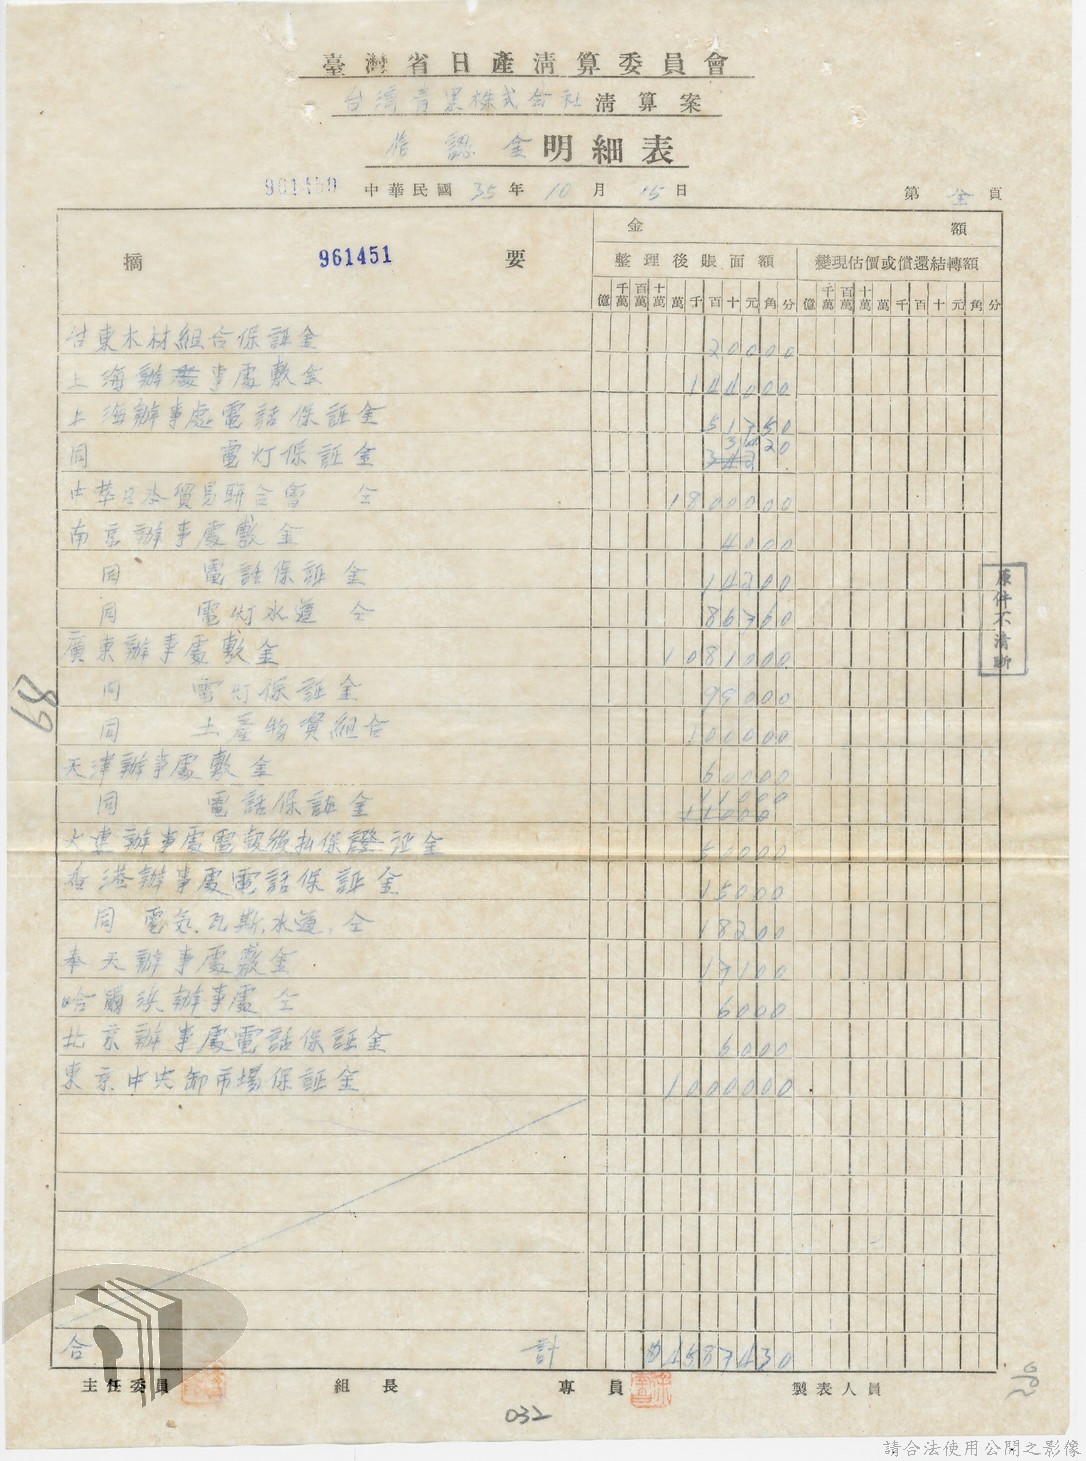 臺灣省日產清算委員會
台灣青果株式会社清算案
保認金明細表
961450 中華民國35年10月15日 第全頁
金額
摘 961451 要
整理後賬面額 變現估價或償還結轉額
億 千萬 百萬 十萬 萬 千 百 十 元 角 分 億 千萬 百萬 十萬 萬 千 百 十 元 角 分
台東木材組合保証金 20000
上海辦事處敷金 144000
上海辦事處電話保証金 51750
同 電灯保証金 3420
中華日本貿易聯合會 仝 1800000
南京辦事處敷金 4000
同 電話保証金 14200
同 電灯水道 仝 86760
廣東辦事處敷金 1081000
同 電灯保証金 99000
同 土產物貿組合 100000
天津辦事處敷金 60000
同 電話保証金 11000
大連辦事處電報後払保證証金 50000
香港辦事處電話保証金 15000
同 電気.瓦斯.水道.仝 18200
奉天辦事處敷金 17100
哈爾浜辦事處 仝 6000
北京辦事處電話保証金 6000
東京中央卸市場保証金 1000000
合計 4587430
主任委員 組長 專員 製表人員
原件不清晰
89
032
請合法使用公開之影像